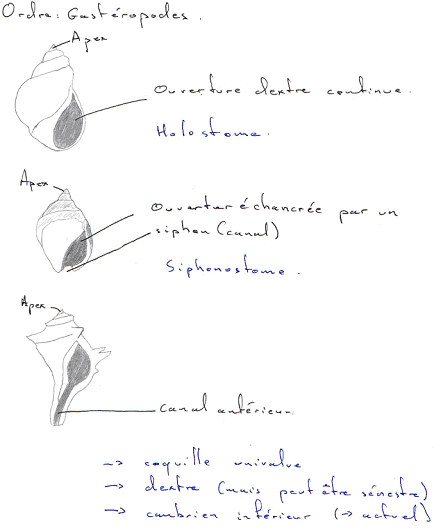 Ordre: Gastéropodes.
Apex
Ouverture dextre continue.
Holostome.
Apex
Ouverture échancrée par un
siphon (canal)
Siphonostome.
Apex
canal antérieur
-> coquille univalve
-> dextre (mais peut être sénestre)
-> cambrien intérieur (-> actuel)